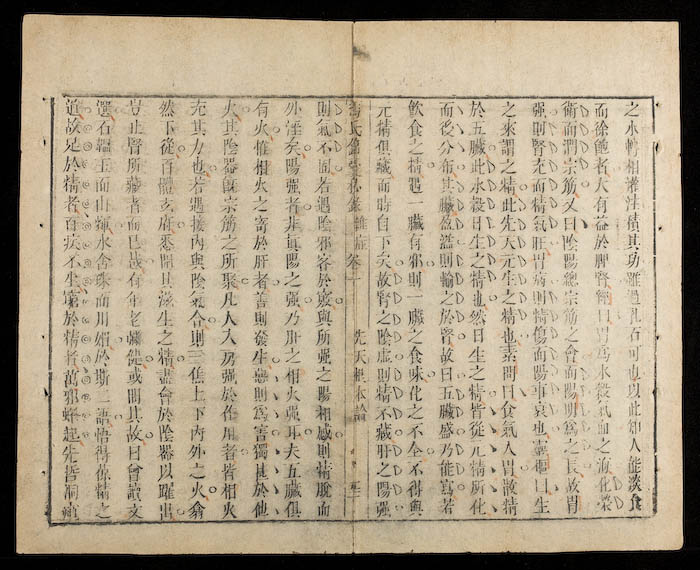 之水轉相灌注積其功雖過乳石可也以此知人能淡食
而徐飽者大有益於脾腎經曰胃為水穀氣血之海化榮
衛而潤宗筋又曰陰陽總宗筋之會而陽明為之長故胃
強則腎充而精氣旺胃病則精傷而陽事衰也靈樞曰生
之來謂之精此先天元生之精也素問曰食氣入胃散精
於五臟此水穀日生之精也然日生之精皆從元精所化
而後分布其臟盈溢則輸之於腎故曰五臟盛乃能寫若
飲食之精遇一臟有邪則一臟之食味化之不全不得與
元精俱藏而時自下矣故腎之陰虛則精不藏肝之陽強
馮氏錦囊秘錄 雜症 卷一 先天根本論
則氣不固若遇陰邪客於竅與所強之陽相感則精脫而
外淫矣陽強者非真陽之強乃肝之相火強耳夫五臟俱
有火惟相火之寄於肝者善則發生惡則為害獨甚於他
火其陰器既宗筋之所聚凡人入房強於作用者皆相火
充其力也若遇接內與陰氣合則三焦上下內外之火翕
然下從百體玄府悉開其滋生之精盡會於陰器以躍出
豈止腎所藏者而已哉有年老彌健或問其故曰曾讀文
選石韞玉而山輝水含珠而川媚於斯二語悟得保精之
道故足於精者百疾不生窮於精者萬邪蜂起先哲洞